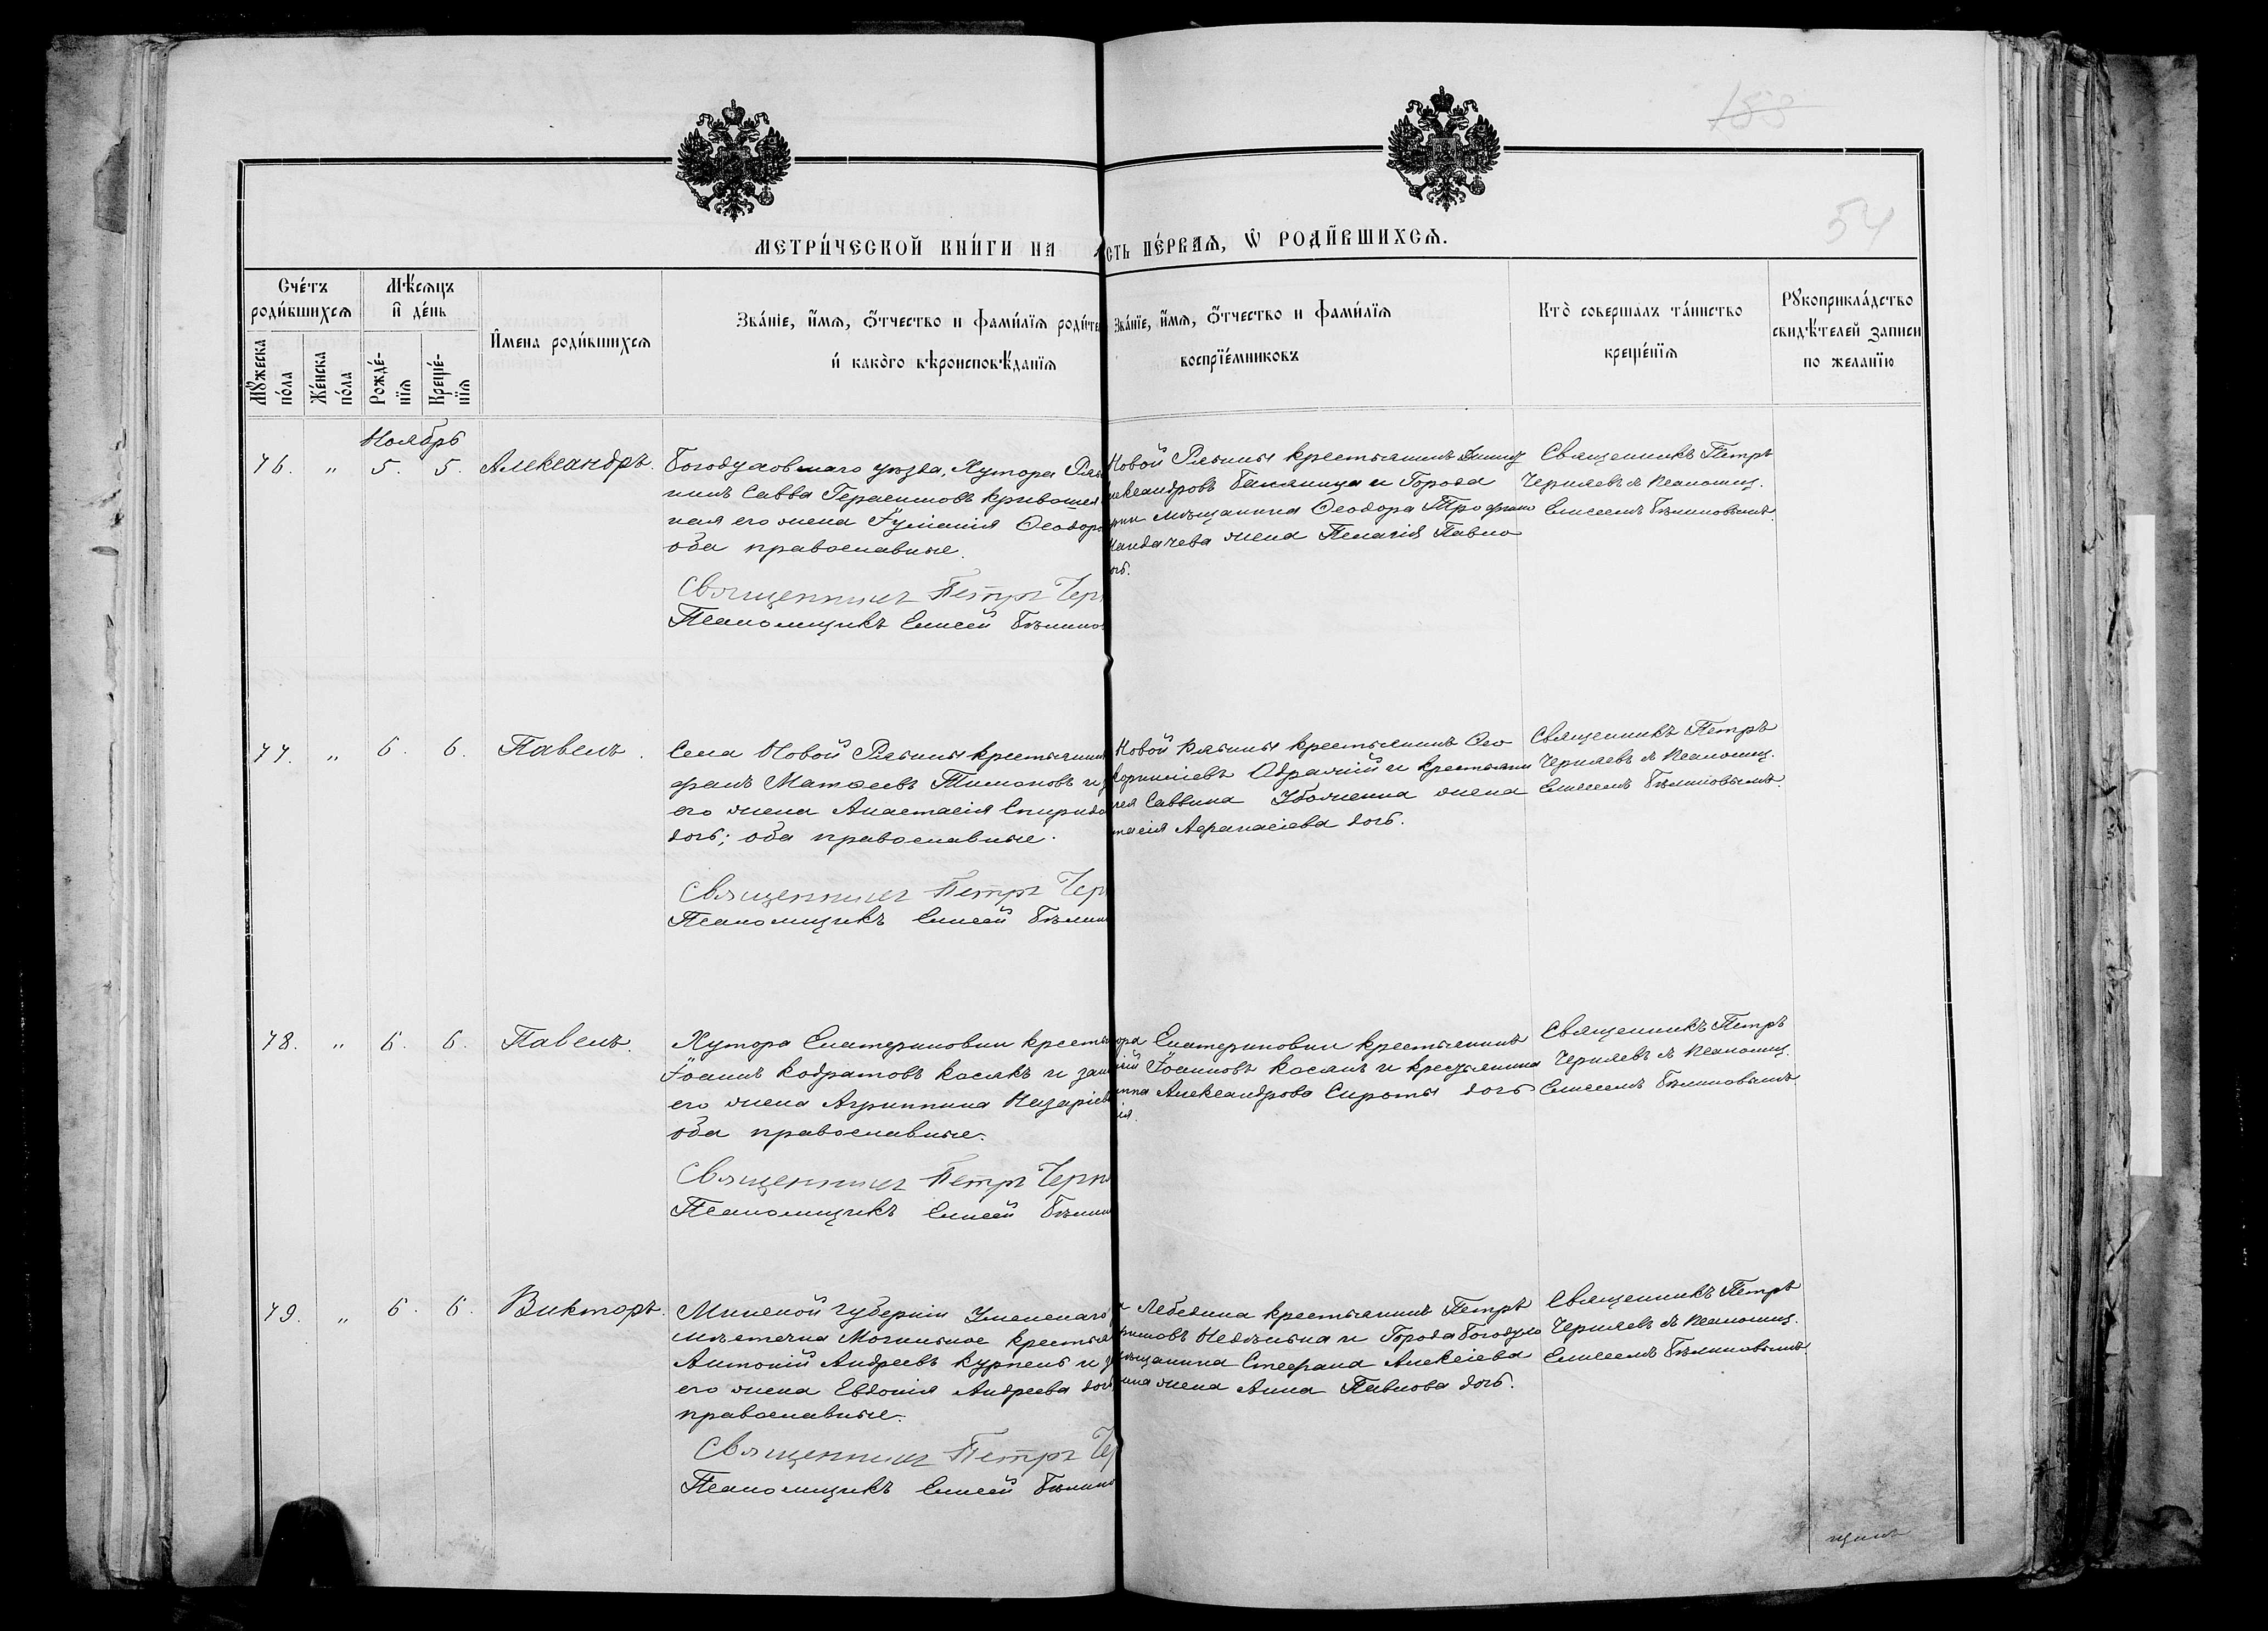 158
54
МЕТРИ́ЧЕСКОЙ КНИ́ГИ НА
СТЬ ПЕ́РВАѦ, Ѡ҆ РОДИ́ВШИХСѦ.
Сче́тъ роди́вшихсѧ
Мѣ́сѧцъ и҆ де́нь
И҆мена роди́вшихсѧ
Зва́нїе, и҆́мѧ, ѻ҆́тчество и фами́лїѧ роди́те
и҆ како́го вѣроисповѣ́данїѧ
Зва́нїе, и҆́мѧ, ѻ҆́тчество и фами́лїѧ
воспрїе́мниковъ
Кто̀ соверша́лъ та́инство
креще́нїѧ
Рꙋкоприкла́дство
свидѣ́телей записи
по жела́нїю
Мꙋ́жеска по́ла
Же́нска по́ла
Рожде́-нїѧ
Креще́-нїѧ
Ноябрь
76. „ 5. 5. Александръ.
Богодуховскаго уѣзда, Хутора Ряс
нинъ Савва Герасимовъ Кривошея
ная его жена Іуліанія Ѳеодоро
оба православные.
Священникъ Петръ Чер
Псаломщикъ Елисей Бѣлико
Новой Рябины крестьянинъ
лександровъ и Города
мѣщанина Ѳеодора Трофимо
жена Пелагія Павло
очь.
Священникъ Петръ
Черняевъ съ Псаломщ.
Елисеемъ Бѣликовымъ.
77. „ 6. 6. Павелъ.
Села Новой Рябины крестьянинъ
фанъ Матѳеевъ Тимоновъ и з
его жена Анастасія Спиридо
дочь; оба православные.
Священникъ Петръ Чер
Псаломщикъ Елисей Бѣлик
Новой Рябины крестьянинъ Ѳео
Корниліевъ и крестьяни
Саввина жена
тасія Аѳанасіева дочь.
Священникъ Петръ
Черняевъ съ Псаломщ.
Елисеемъ Бѣликовымъ.
78. „ 6. 6. Павелъ.
Хутора Екатериновки кресть
Іоаннъ Кодратовъ Косякъ и зак
его жена Агриппина Назаріев
оба православные.
Священникъ Петръ Черн
Псаломщикъ Елисей Бѣлик
ора Екатериновки крестьянинъ
Іоанновъ Косякъ и крестьянина
Александрова Сироты дочь
ія.
Священникъ Петръ
Черняевъ съ Псаломщ.
Елисеемъ Бѣликовымъ.
79. „ 6. 6. Викторъ.
Минской губерніи Игуменскаго
мѣстечка Могильное крестья
Антоній Андреевъ Курпень и з
его жена Евдокія Андреева доч
православные.
Священникъ Петръ Че
Псаломщикъ Елисей Бѣлико
Лебедина крестьянинъ Петръ
и Города Богодухо
мѣщанина Стефана Алексіева
жена Анна Павлова дочь.
Священникъ Петръ
Черняевъ съ Псаломщ.
Елисеемъ Бѣликовымъ.